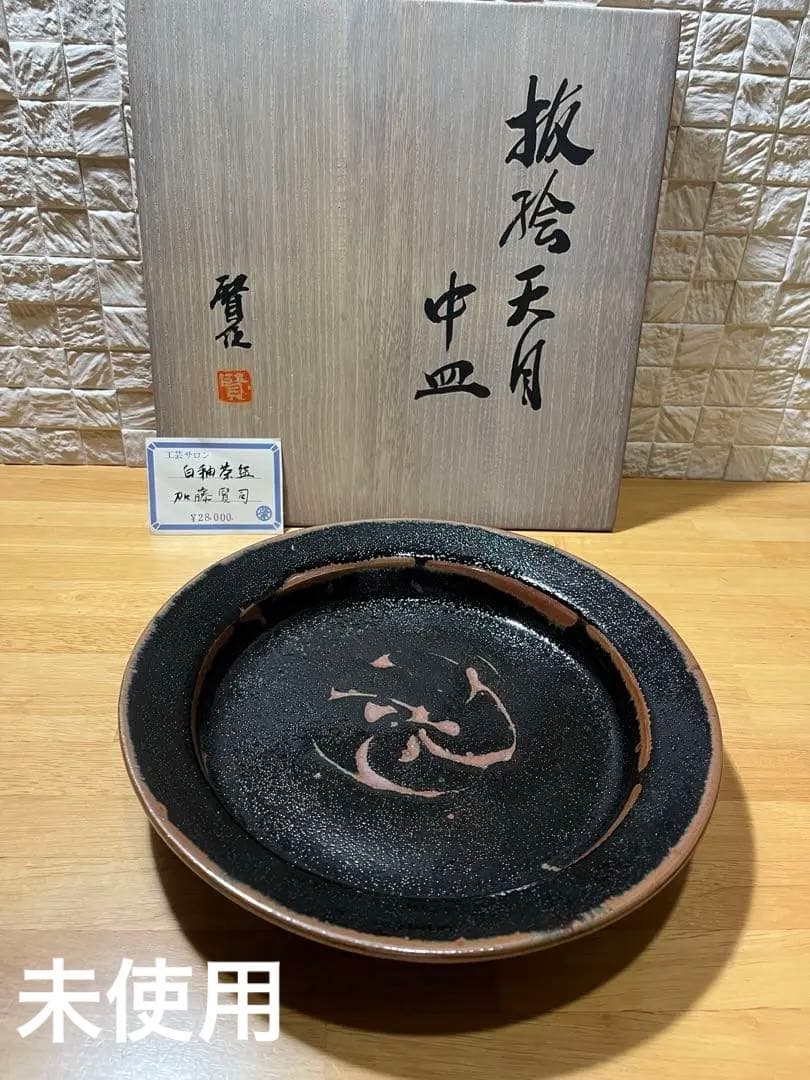 抜絵天目
中皿
賢作
賢
工芸サロン
白釉茶碗
加藤賢司
¥28,000
未使用